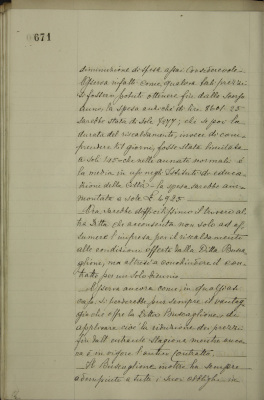 671
diminuzione di spese assai considerevole.
Osserva infatti come, qualora tali prezzi
si fossero potuti ottenere fin dallo scorso
anno, la spesa anzichè di Lire 8601.25
sarebbe stata di sole 7077; che se poi la
durata del riscaldamento, invece di com-
prendere giorni, fosse stata limitata
a soli 150 che nelle annate normali è
la media in uso negli Istituti di educa-
zione della Città, la spesa sarebbe am-
montata a sole £ 4925.
Ora sarebbe difficilissimo il trovare al-
tra Ditta che acconsenta non solo ad as-
sumere l'impresa per il riscaldamento
alle condizioni offerte dalla Ditta Busca-
glione, ma altresì a conchiudere il con-
tratto per un solo biennio.
Osserva ancora come in qualsiasi
caso si perderebbe pur sempre il vantag-
gio che offre la Ditta Buscaglione di
applicare cioè la riduzione dei prezzi
fin dall'entrante stagione mentre anco-
ra è in vigore l'antico contratto.
Il Buscaglione inoltre ha sempre
adempiuto a tutti i suoi obblighi in